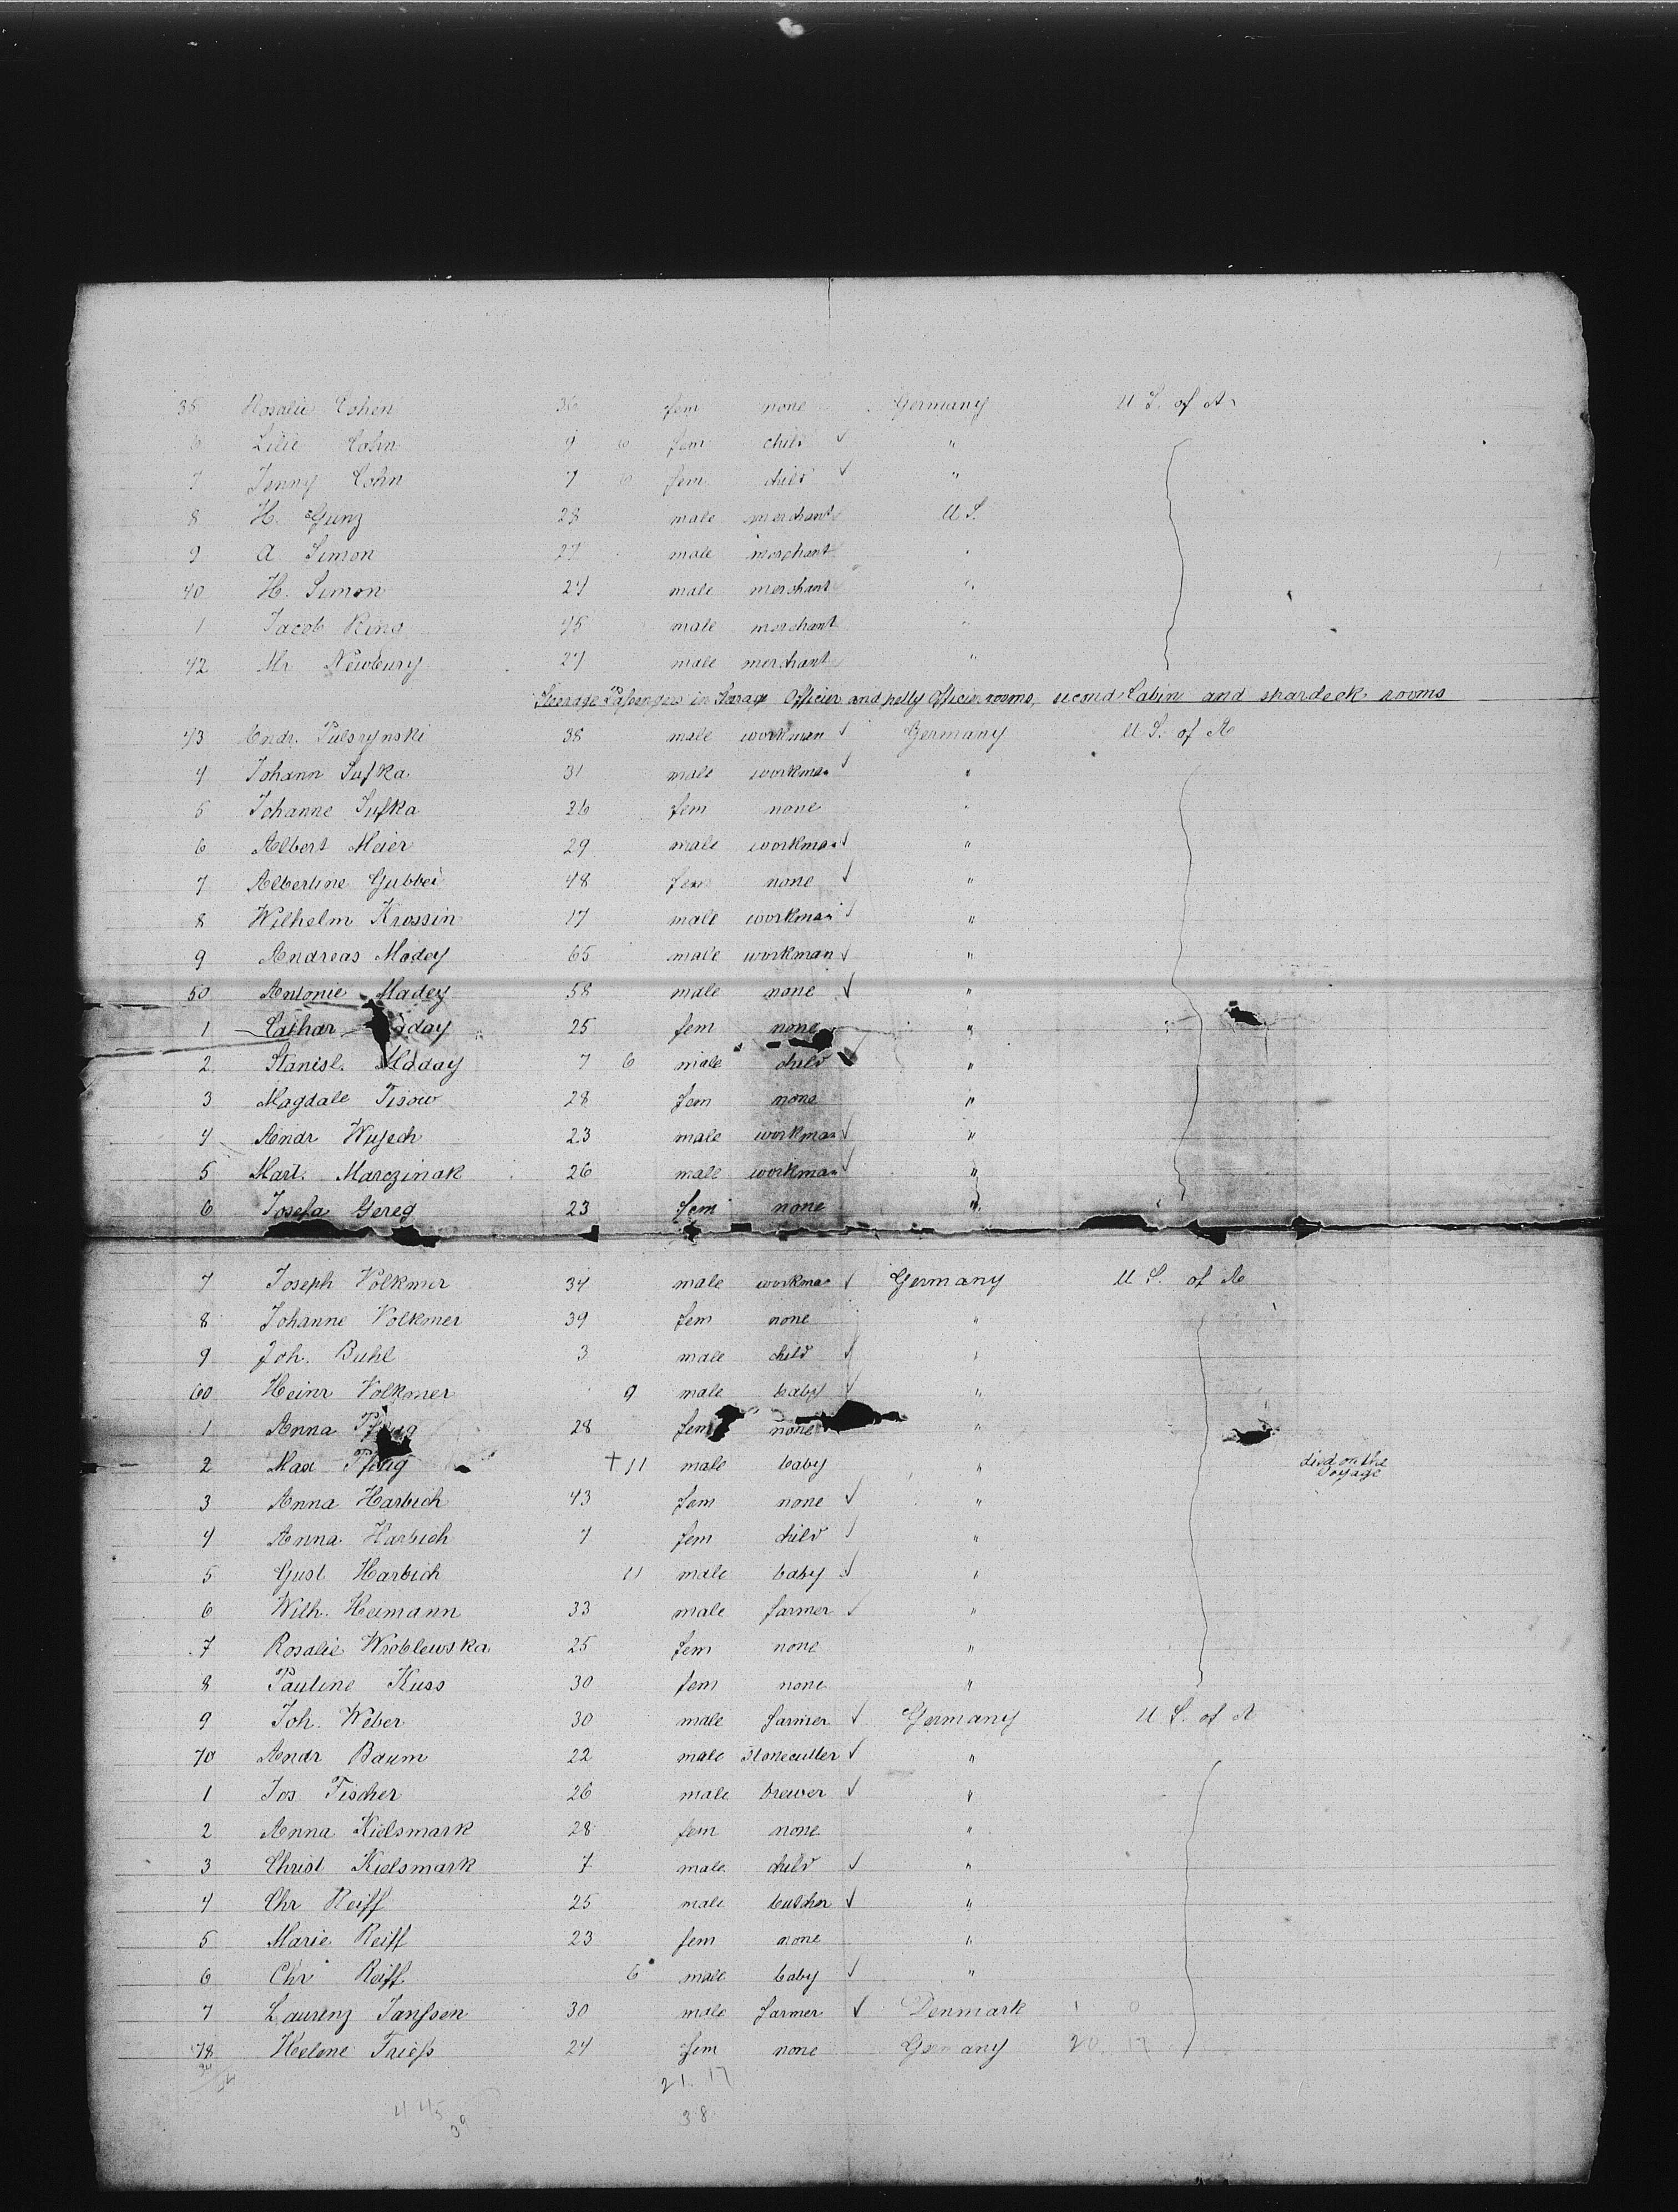 35 Rosalie Cohen 36 fem none Germany U S. of A
6 Lilie Cohn 9 6 fem child √ "
7 Jenny Cohn 7 6 fem child √ "
8 H. Gunz 28 male merchant U S.
9 A. Simon 27 male merchant "
40 H. Simon 24 male merchant "
1 Jacob Ring 45 male merchant "
42 Mr Newbury 27 male merchant "
Steerage Passengers in Officier and petty Officier rooms, second Cabin and spardeck rooms
43 Andr. Pulszynski 38 male workman √ Germany U S. of A
4 Johann Sufka 31 male workman √ "
5 Johanne Sufka 26 fem none "
6 Albert Meier 29 male workman √ "
7 Albertine Gubbei 48 fem none √ "
8 Wilhelm Krossin 17 male workman √ "
9 Andreas Madey 65 male workman √ "
50 Antonie Madey 58 male none √ "
1 Cathar 25 fem none "
2 Stanisl. Maday 7 6 male child √ "
3 Magdale Tisow 28 fem none "
4 Andr Wujech 23 male workman √ "
5 Mart. Marczinak 26 male workman √ "
6 Josefa Gereg 23 fem none "
7 Joseph Volkmer 34 male workman √ Germany U S. of A
8 Johanne Volkmer 39 fem none "
9 Joh. Buhl 3 male child √ "
60 Heinr Volkmer 9 male baby √ "
1 Anna Pflug 28 fem none "
2 Max Pflug + 11 male baby " died on the
voyage
3 Anna Harbich 43 fem none √ "
4 Anna Harbich 7 fem child √ "
5 Gust Harbich 11 male baby √ "
6 Wilh. Heimann 33 male farmer √ "
7 Rosalie Wroblewska 25 fem none "
8 Pauline Kuss 30 fem none "
9 Joh. Weber 30 male farmer √ Germany U S. of A
70 Andr Baum 22 male stonecutter √ "
1 Jos Fischer 26 male brewer √ "
2 Anna Kielsmark 28 fem none "
3 Christ Kielsmark 7 male child √ "
4 Chr Reiff 25 male butcher √ "
5 Marie Reiff 23 fem none "
6 Chr Reiff 6 male baby √ "
7 Laurenz Janssen 30 male farmer √ Denmark 1 0
78 Helene Triess 24 fem none Germany 20 17
21. 17
38